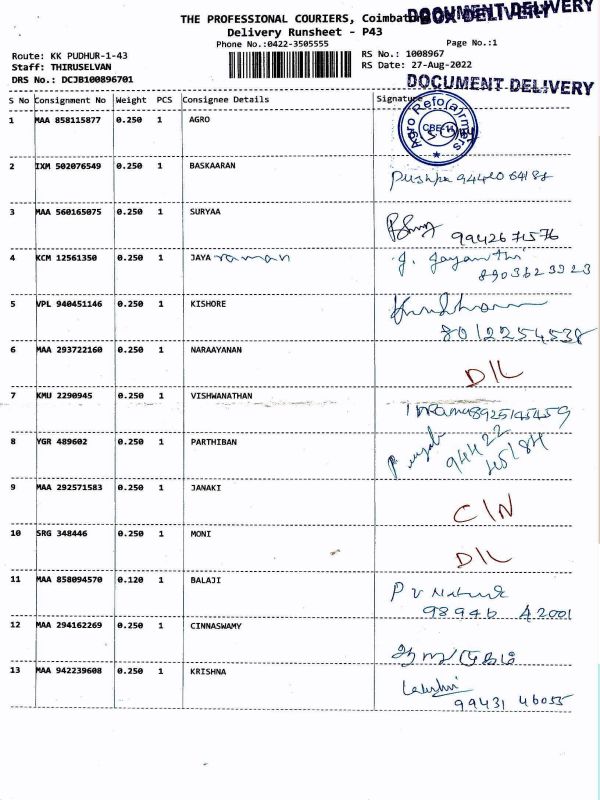 THE PROFESSIONAL COURIERS, Coimbatore
DOCUMENT DELIVERY
BOX DELIVERY
Delivery Runsheet - P43
Phone No.:0422-3505555
Page No.:1
Route: KK PUDHUR-1-43
RS No.: 1008967
Staff: THIRUSELVAN
RS Date: 27-Aug-2022
DRS No.: DCJB100896701
DOCUMENT DELIVERY
S No Consignment No Weight PCS Consignee Details Signature
1 MAA 858115877 0.250 1 AGRO
Agro Refo(a)rmers
2 IXM 502076549 0.250 1 BASKAARAN
Pushpa 94420 64182
3 MAA 560165075 0.250 1 SURYAA
99426 71576
4 KCM 12561350 0.250 1 JAYA raman J. Jayanthi
8903623923
5 VPL 940451146 0.250 1 KISHORE
8012254538
6 MAA 293722160 0.250 1 NARAAYANAN
D/L
7 KMU 2290945 0.250 1 VISHWANATHAN
8925145459
8 YGR 489602 0.250 1 PARTHIBAN
94422
45184
9 MAA 292571583 0.250 1 JANAKI
C/N
10 SRG 348446 0.250 1 MONI
D/L
11 MAA 858094570 0.120 1 BALAJI
98946 42001
12 MAA 294162269 0.250 1 CINNASWAMY
13 MAA 942239608 0.250 1 KRISHNA
Lakshmi
99431 46055